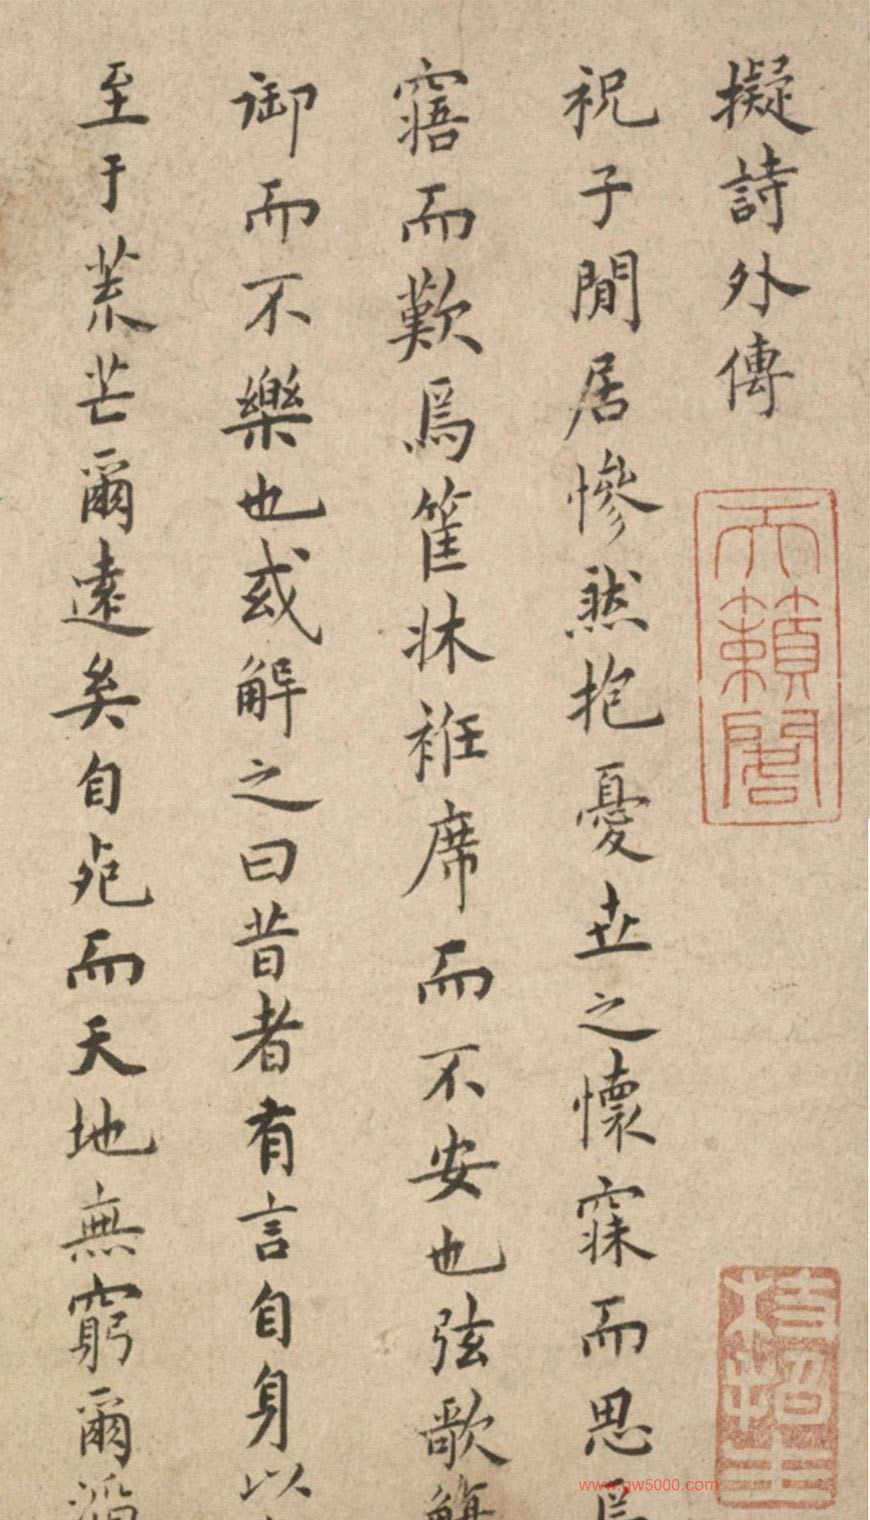 擬詩外傳
天籟閣
祝子閒居慘然抱憂世之懷寐而思焉
寤而歎焉筐牀袵席而不安也弦歌
御而不樂也或解之曰昔者有言自身以
至于荒芒爾遠矣自死而天地無窮爾滔
www.gw5000.com